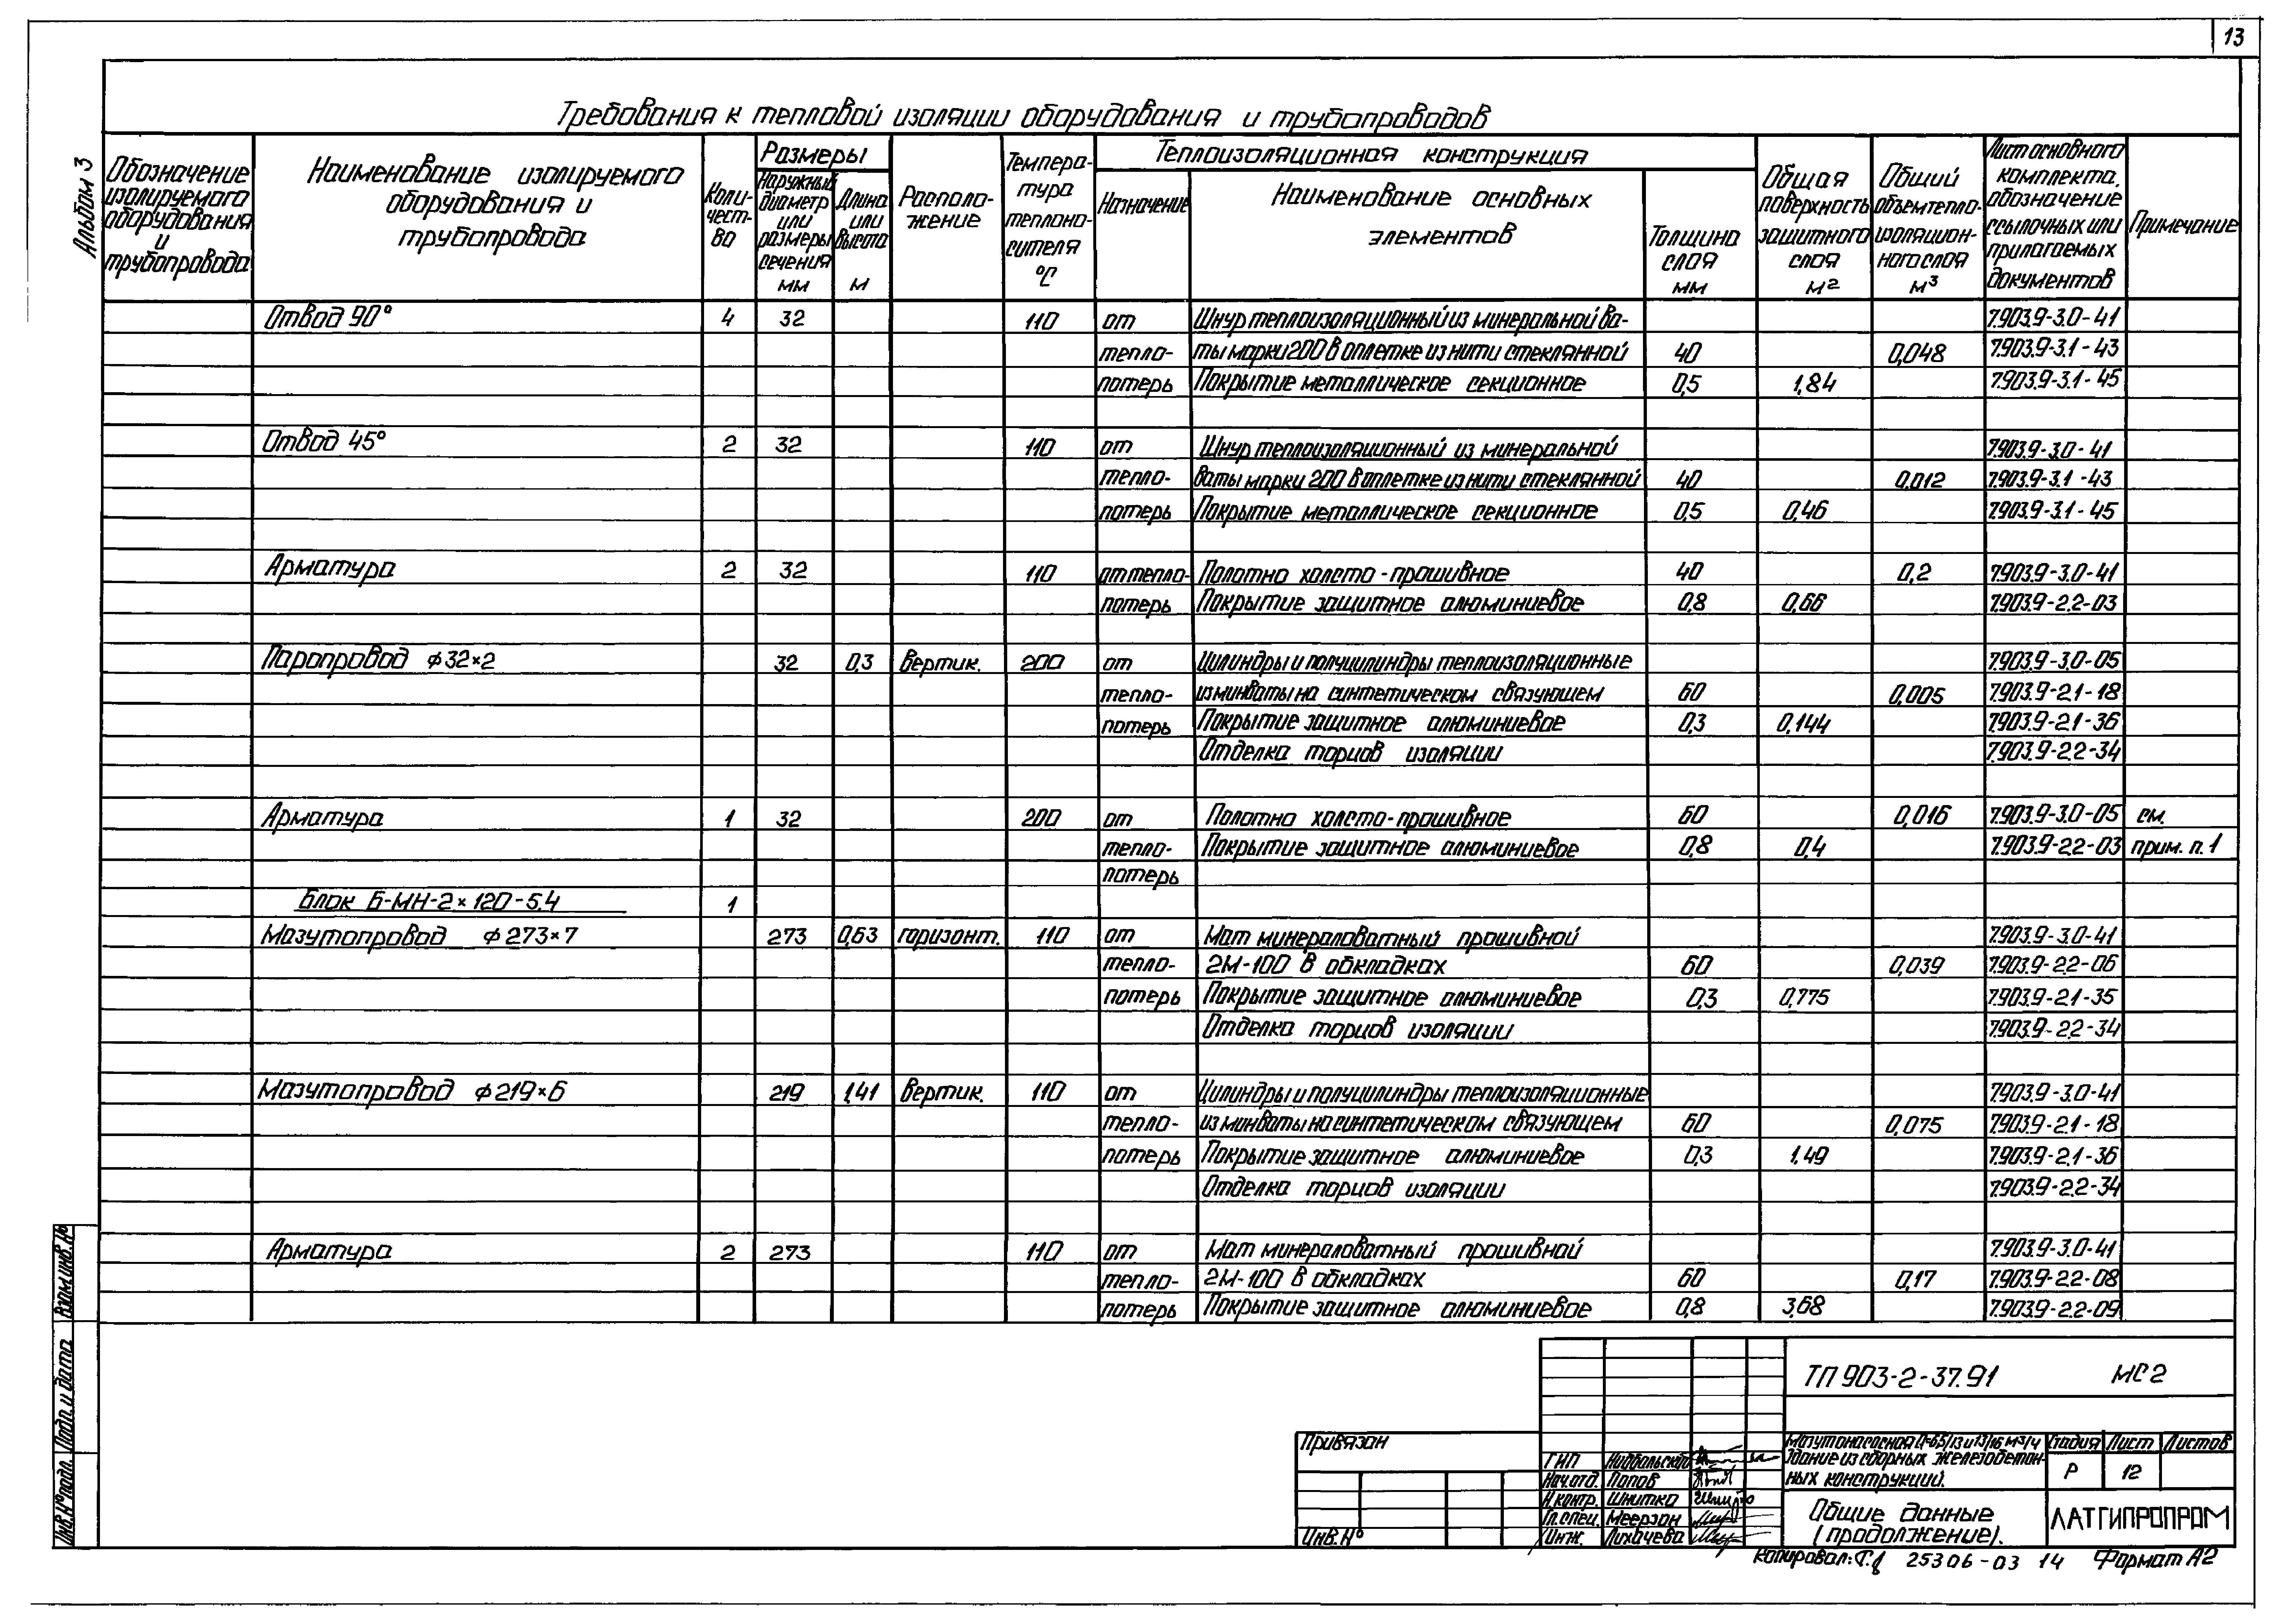 13
Альбом 3
Требования к тепловой изоляции оборудования и трубопроводов
Обозначение изолируемого оборудования и трубопровода
Наименование изолируемого оборудования и трубопровода
Коли-чест-во
Размеры
Наружный диаметр или размеры сечения мм
Длина или высота м
Располо-жение
Темпера-тура теплоно-сителя °С
Теплоизоляционная конструкция
Назначение
Наименование основных элементов
Толщина слоя мм
Общая поверхность защитного слоя м²
Общий объем тепло-изоляцион-ного слоя м³
Лист основного комплекта, обозначение ссылочных или прилагаемых документов
Примечание
Отвод 90° 4 32 110 от Шнур теплоизоляционный из минеральной ва- 7.903.9-3.0-41
тепло- ты марки 200 в оплетке из нити стеклянной 40 0,048 7.903.9-3.1-43
потерь Покрытие металлическое секционное 0,5 1,84 7.903.9-3.1-45
Отвод 45° 2 32 110 от Шнур теплоизоляционный из минеральной 7.903.9-3.0-41
тепло- ваты марки 200 в оплетке из нити стеклянной 40 0,012 7.903.9-3.1-43
потерь Покрытие металлическое секционное 0,5 0,46 7.903.9-3.1-45
Арматура 2 32 110 от тепло- Полотно холсто-прошивное 40 0,2 7.903.9-3.0-41
потерь Покрытие защитное алюминиевое 0,8 0,66 7.903.9-2.2-03
Паропровод ф32×2 32 0,3 вертик. 200 от Цилиндры и полуцилиндры теплоизоляционные 7.903.9-3.0-05
тепло- из минваты на синтетическом связующем 60 0,005 7.903.9-2.1-18
потерь Покрытие защитное алюминиевое 0,3 0,144 7.903.9-2.1-36
Отделка торцов изоляции 7.903.9-2.2-34
Арматура 1 32 200 от Полотно холсто-прошивное 60 0,016 7.903.9-3.0-05 см.
тепло- Покрытие защитное алюминиевое 0,8 0,4 7.903.9-2.2-03 прим. п.1
потерь
Блок Б-МН-2×120-5.4 1
Мазутопровод ф273×7 273 0,63 горизонт. 110 от Мат минераловатный прошивной 7.903.9-3.0-41
тепло- 2М-100 в обкладках 60 0,039 7.903.9-2.2-06
потерь Покрытие защитное алюминиевое 0,3 0,775 7.903.9-2.1-35
Отделка торцов изоляции 7.903.9-2.2-34
Мазутопровод ф219×6 219 1,41 вертик. 110 от Цилиндры и полуцилиндры теплоизоляционные 7.903.9-3.0-41
тепло- из минваты на синтетическом связующем 60 0,075 7.903.9-2.1-18
потерь Покрытие защитное алюминиевое 0,3 1,49 7.903.9-2.1-36
Отделка торцов изоляции 7.903.9-2.2-34
Арматура 2 273 110 от Мат минераловатный прошивной 7.903.9-3.0-41
тепло- 2М-100 в обкладках 60 0,17 7.903.9-2.2-08
потерь Покрытие защитное алюминиевое 0,8 3,68 7.903.9-2.2-09
Взам.инв.№
Подп. и дата
Инв.№ подл.
ТП 903-2-37.91 МС2
Привязан
Инв.№
ГИП
Нач.отд. Попов
Н.контр. Шнитко
Гл.спец. Меерзон
Инж. Лихачева
Мазутонасосная Q=6,5/13 и 13/16 м³/ч
Здание из сборных железобетон-
ных конструкций.
Стадия Лист Листов
Р 12
Общие данные
(продолжение).
ЛАТГИПРОПРОМ
Копировал: 25306-03 14 Формат А2